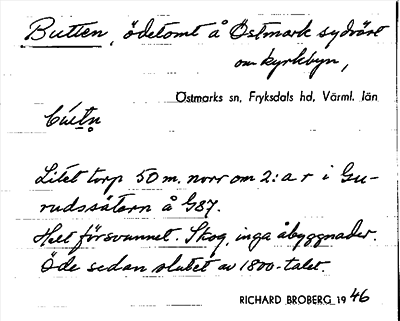 Butten, ödetomt å Östmark sydväst
om kyrkbyn,
Östmarks sn, Fryksdals hd, Värml. län
Litet torp 50 m. norr om 2:a r i Gu-
rudssätern å G87.
Helt försvunnet. Skog, inga åbyggnader.
Öde sedan slutet av 1800-talet.
RICHARD BROBERG 1946